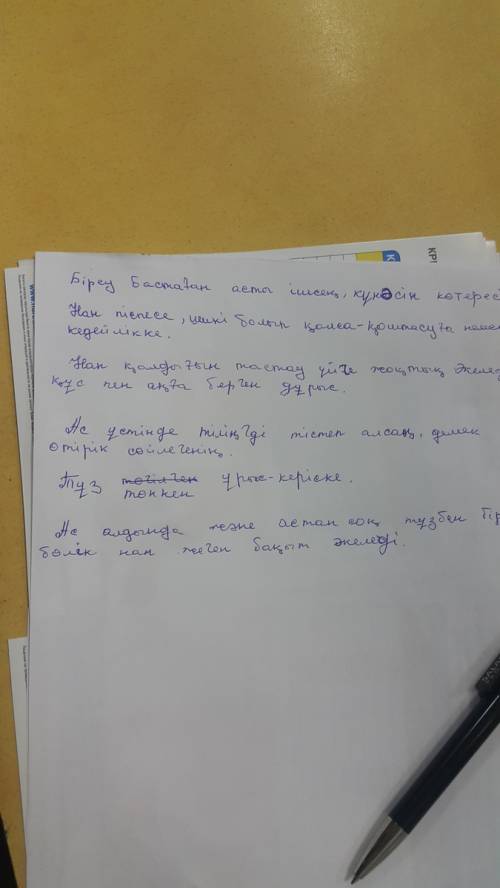 Біреу Бастаған асты ішсең, күнәсін көтересі
Нан піспесе, шикі болып қалса-қоштасуға неме
кедейлікке.
Нан қалдығын тастау үйге жоқтық әкелед
құс пен аққа берген дұрыс.
Ас үстінде тіліңізді тістеп алсаң, демек
өтірік сөйлегенің.
Тұз төгілген ұрыс-керіске.
төккен
Ас алдында және астан соң тұзбен бір
бөлік нан жеген бақыт әкеледі.
КРІ